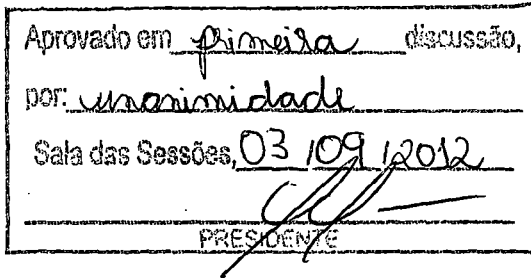 Aprovado em primeira discussão,
por: unanimidade
Sala das Sessões, 03/09/2012
PRESIDENTE